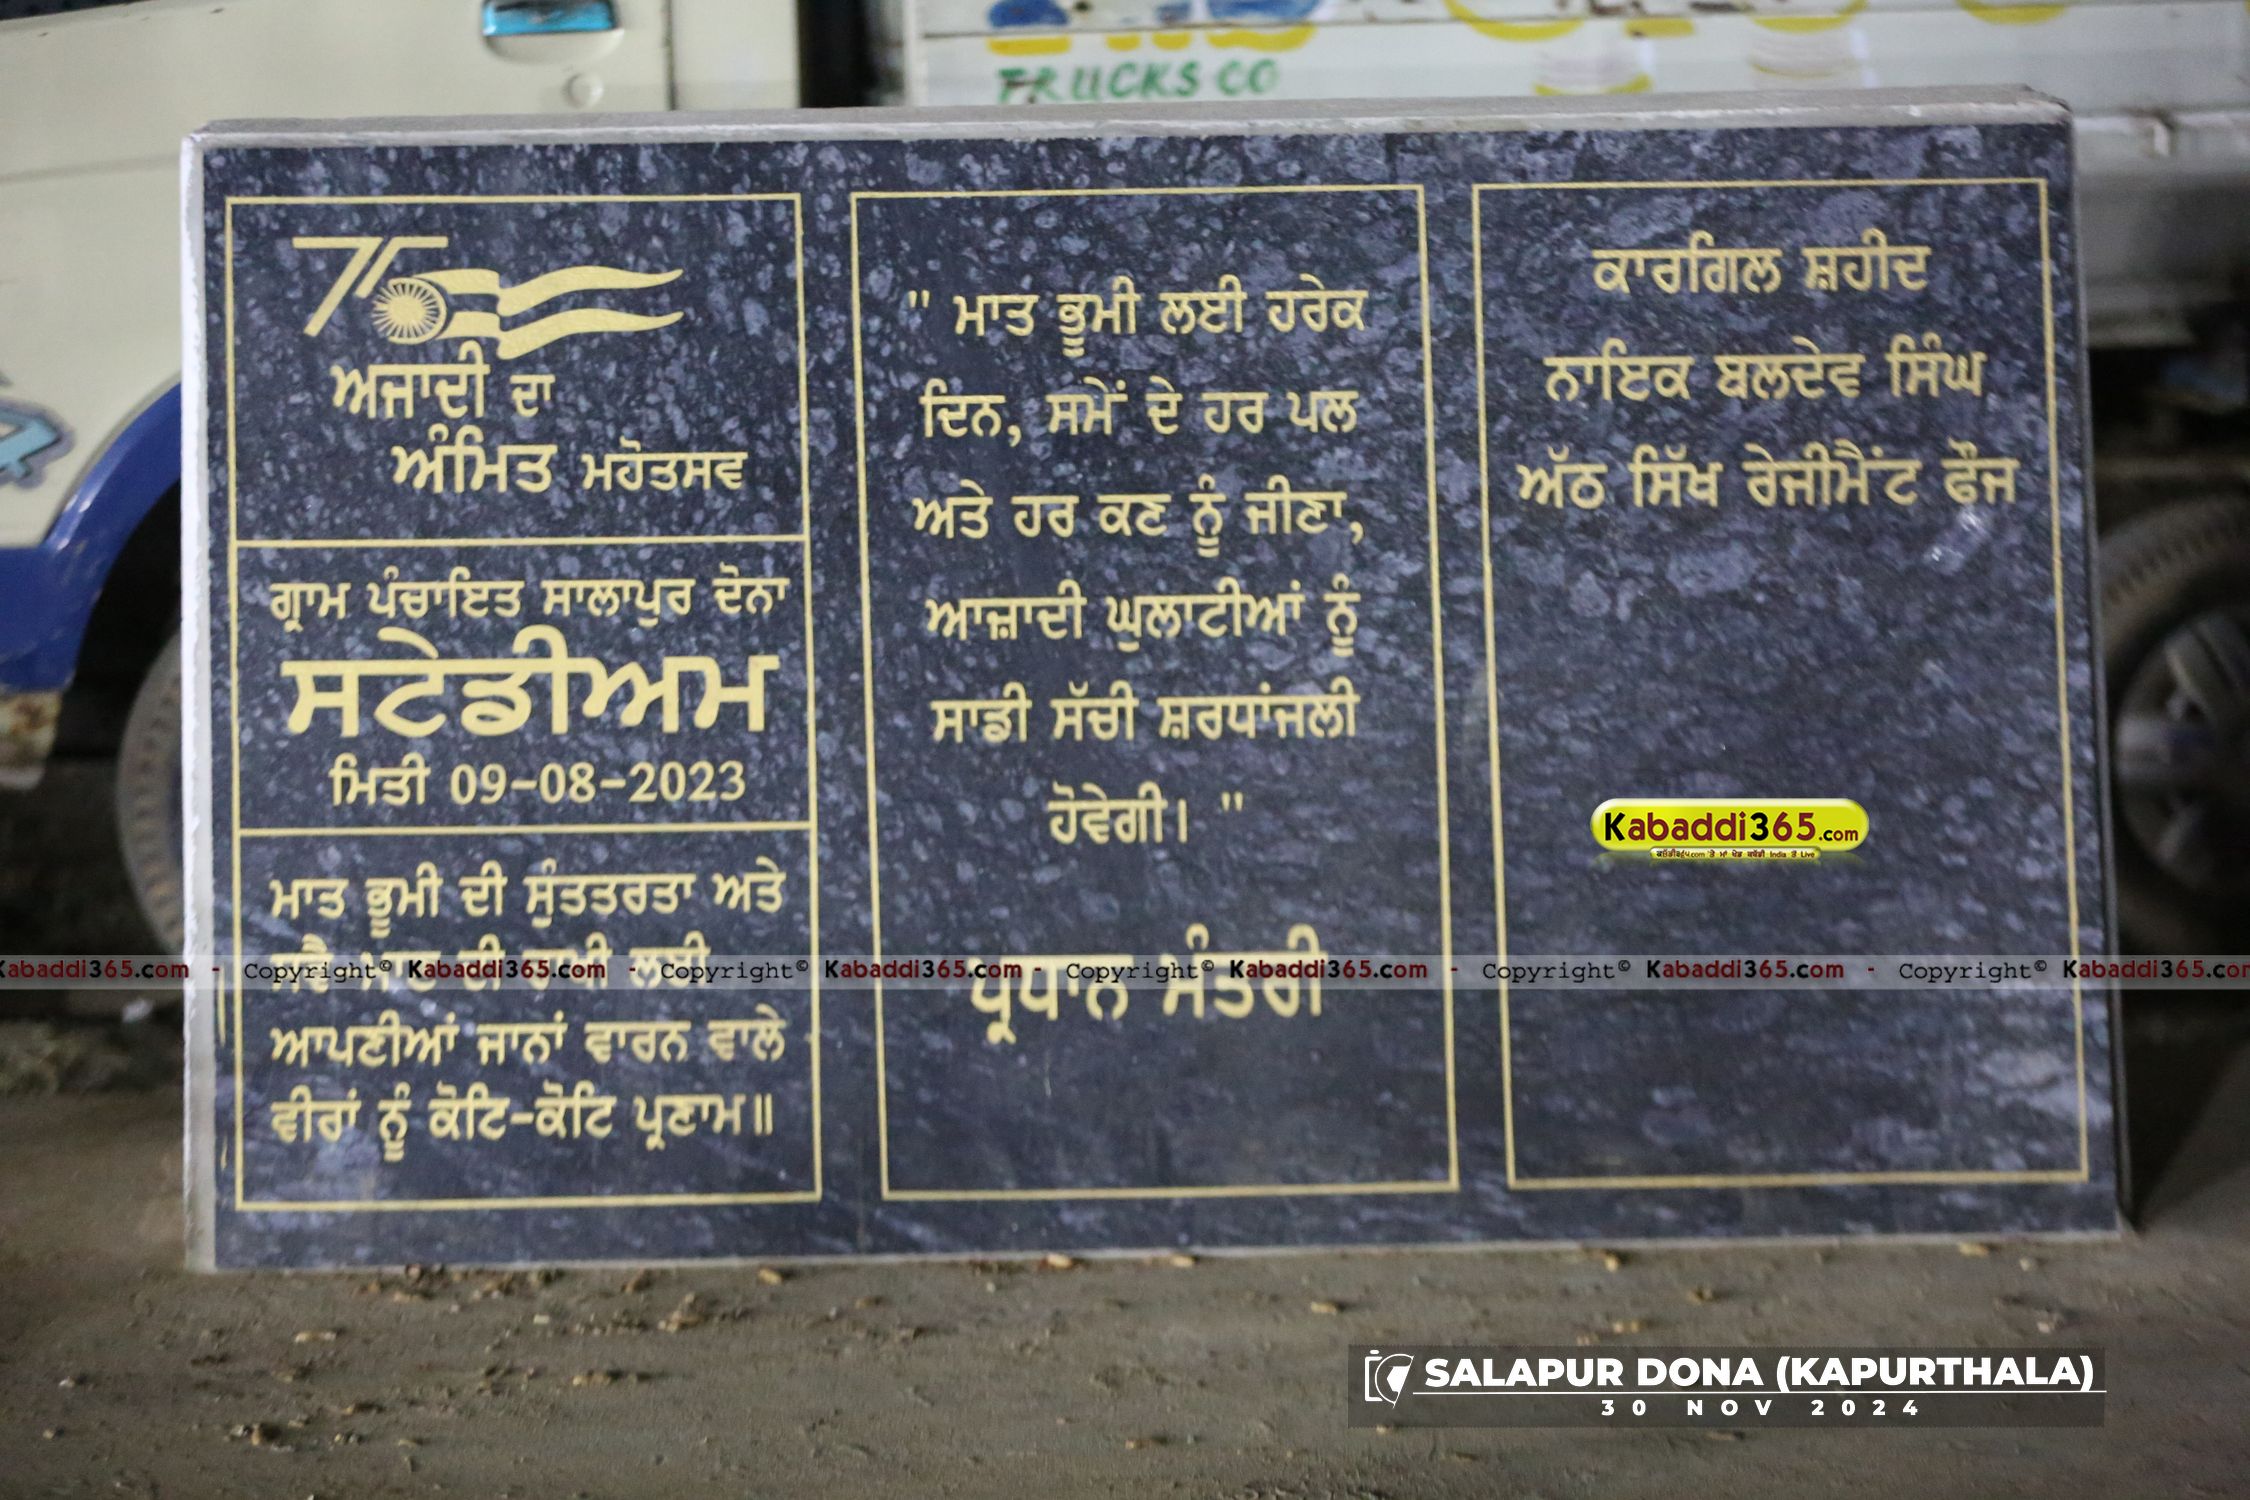 TRUCKS CO
75
ਅਜਾਦੀ ਦਾ
ਅੰਮਿਤ ਮਹੋਤਸਵ
ਗ੍ਰਾਮ ਪੰਚਾਇਤ ਸਾਲਾਪੁਰ ਦੋਨਾ
ਸਟੇਡੀਅਮ
ਮਿਤੀ 09-08-2023
ਮਾਤ ਭੂਮੀ ਦੀ ਸੁੰਤਤਰਤਾ ਅਤੇ
ਦੀ ਰਾਖੀ ਲਈ
ਆਪਣੀਆਂ ਜਾਨਾਂ ਵਾਰਨ ਵਾਲੇ
ਵੀਰਾਂ ਨੂੰ ਕੋਟਿ-ਕੋਟਿ ਪ੍ਰਣਾਮ॥
" ਮਾਤ ਭੂਮੀ ਲਈ ਹਰੇਕ
ਦਿਨ, ਸਮੇਂ ਦੇ ਹਰ ਪਲ
ਅਤੇ ਹਰ ਕਣ ਨੂੰ ਜੀਣਾ,
ਆਜ਼ਾਦੀ ਘੁਲਾਟੀਆਂ ਨੂੰ
ਸਾਡੀ ਸੱਚੀ ਸ਼ਰਧਾਂਜਲੀ
ਹੋਵੇਗੀ। "
ਪ੍ਰਧਾਨ ਮੰਤਰੀ
ਕਾਰਗਿਲ ਸ਼ਹੀਦ
ਨਾਇਕ ਬਲਦੇਵ ਸਿੰਘ
ਅੱਠ ਸਿੱਖ ਰੇਜੀਮੈਂਟ ਫੌਜ
Kabaddi365.com
Kabaddi365.com - Copyright© Kabaddi365.com - Copyright© Kabaddi365.com - Copyright© Kabaddi365.com - Copyright© Kabaddi365.com - Copyright© Kabaddi365.com
SALAPUR DONA (KAPURTHALA)
30 NOV 2024